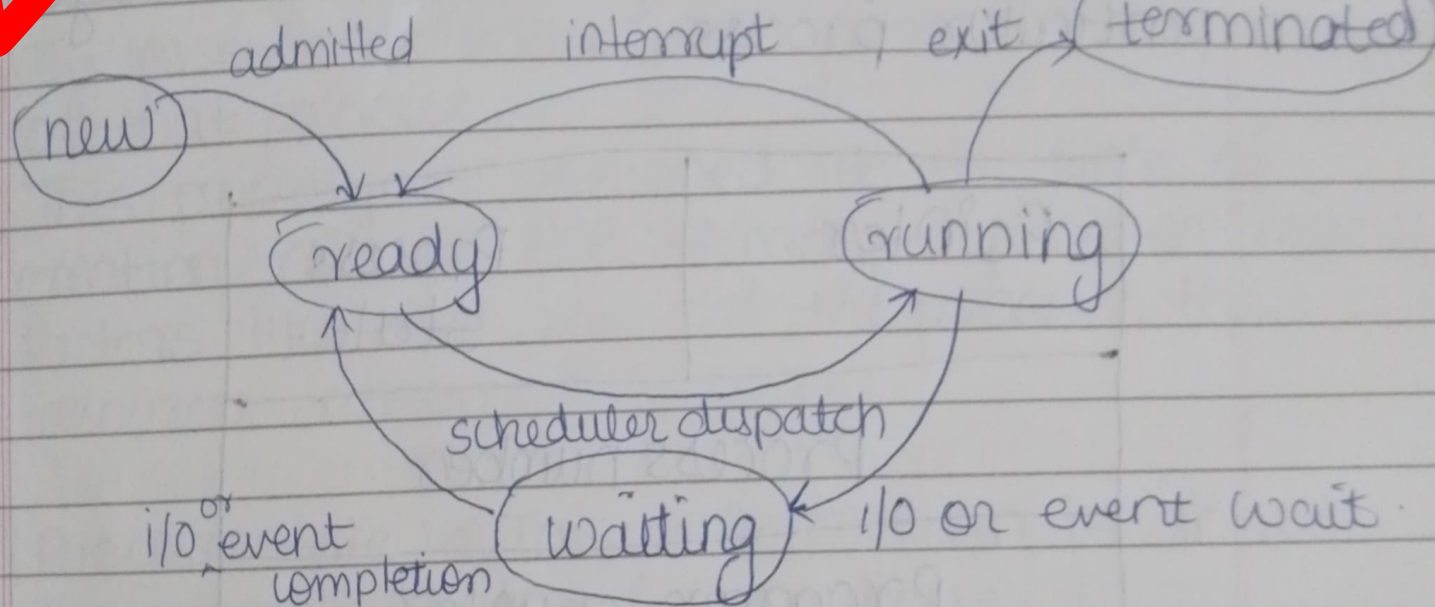 admitted interrupt exit terminated
new
ready running
scheduler dispatch
i/o or event completion
waiting
i/o or event wait